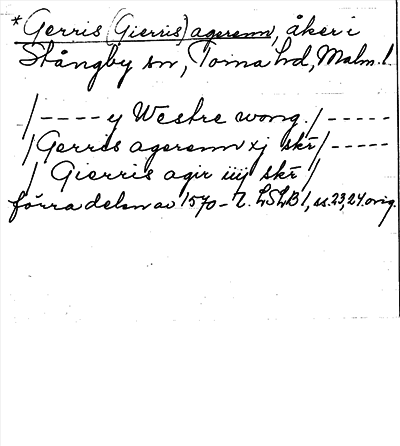 *Gerris (Gierris) agerenn, åker i
Stångby sn, Torna hd, Malm. l.
/---- y Westre wong. /-----
/Gerris agerenn xj skr̄/-----
/ Gierris agir iiij skr̄ /
förra delen av 1570-t. LSLB 1, ss. 23, 24 orig.